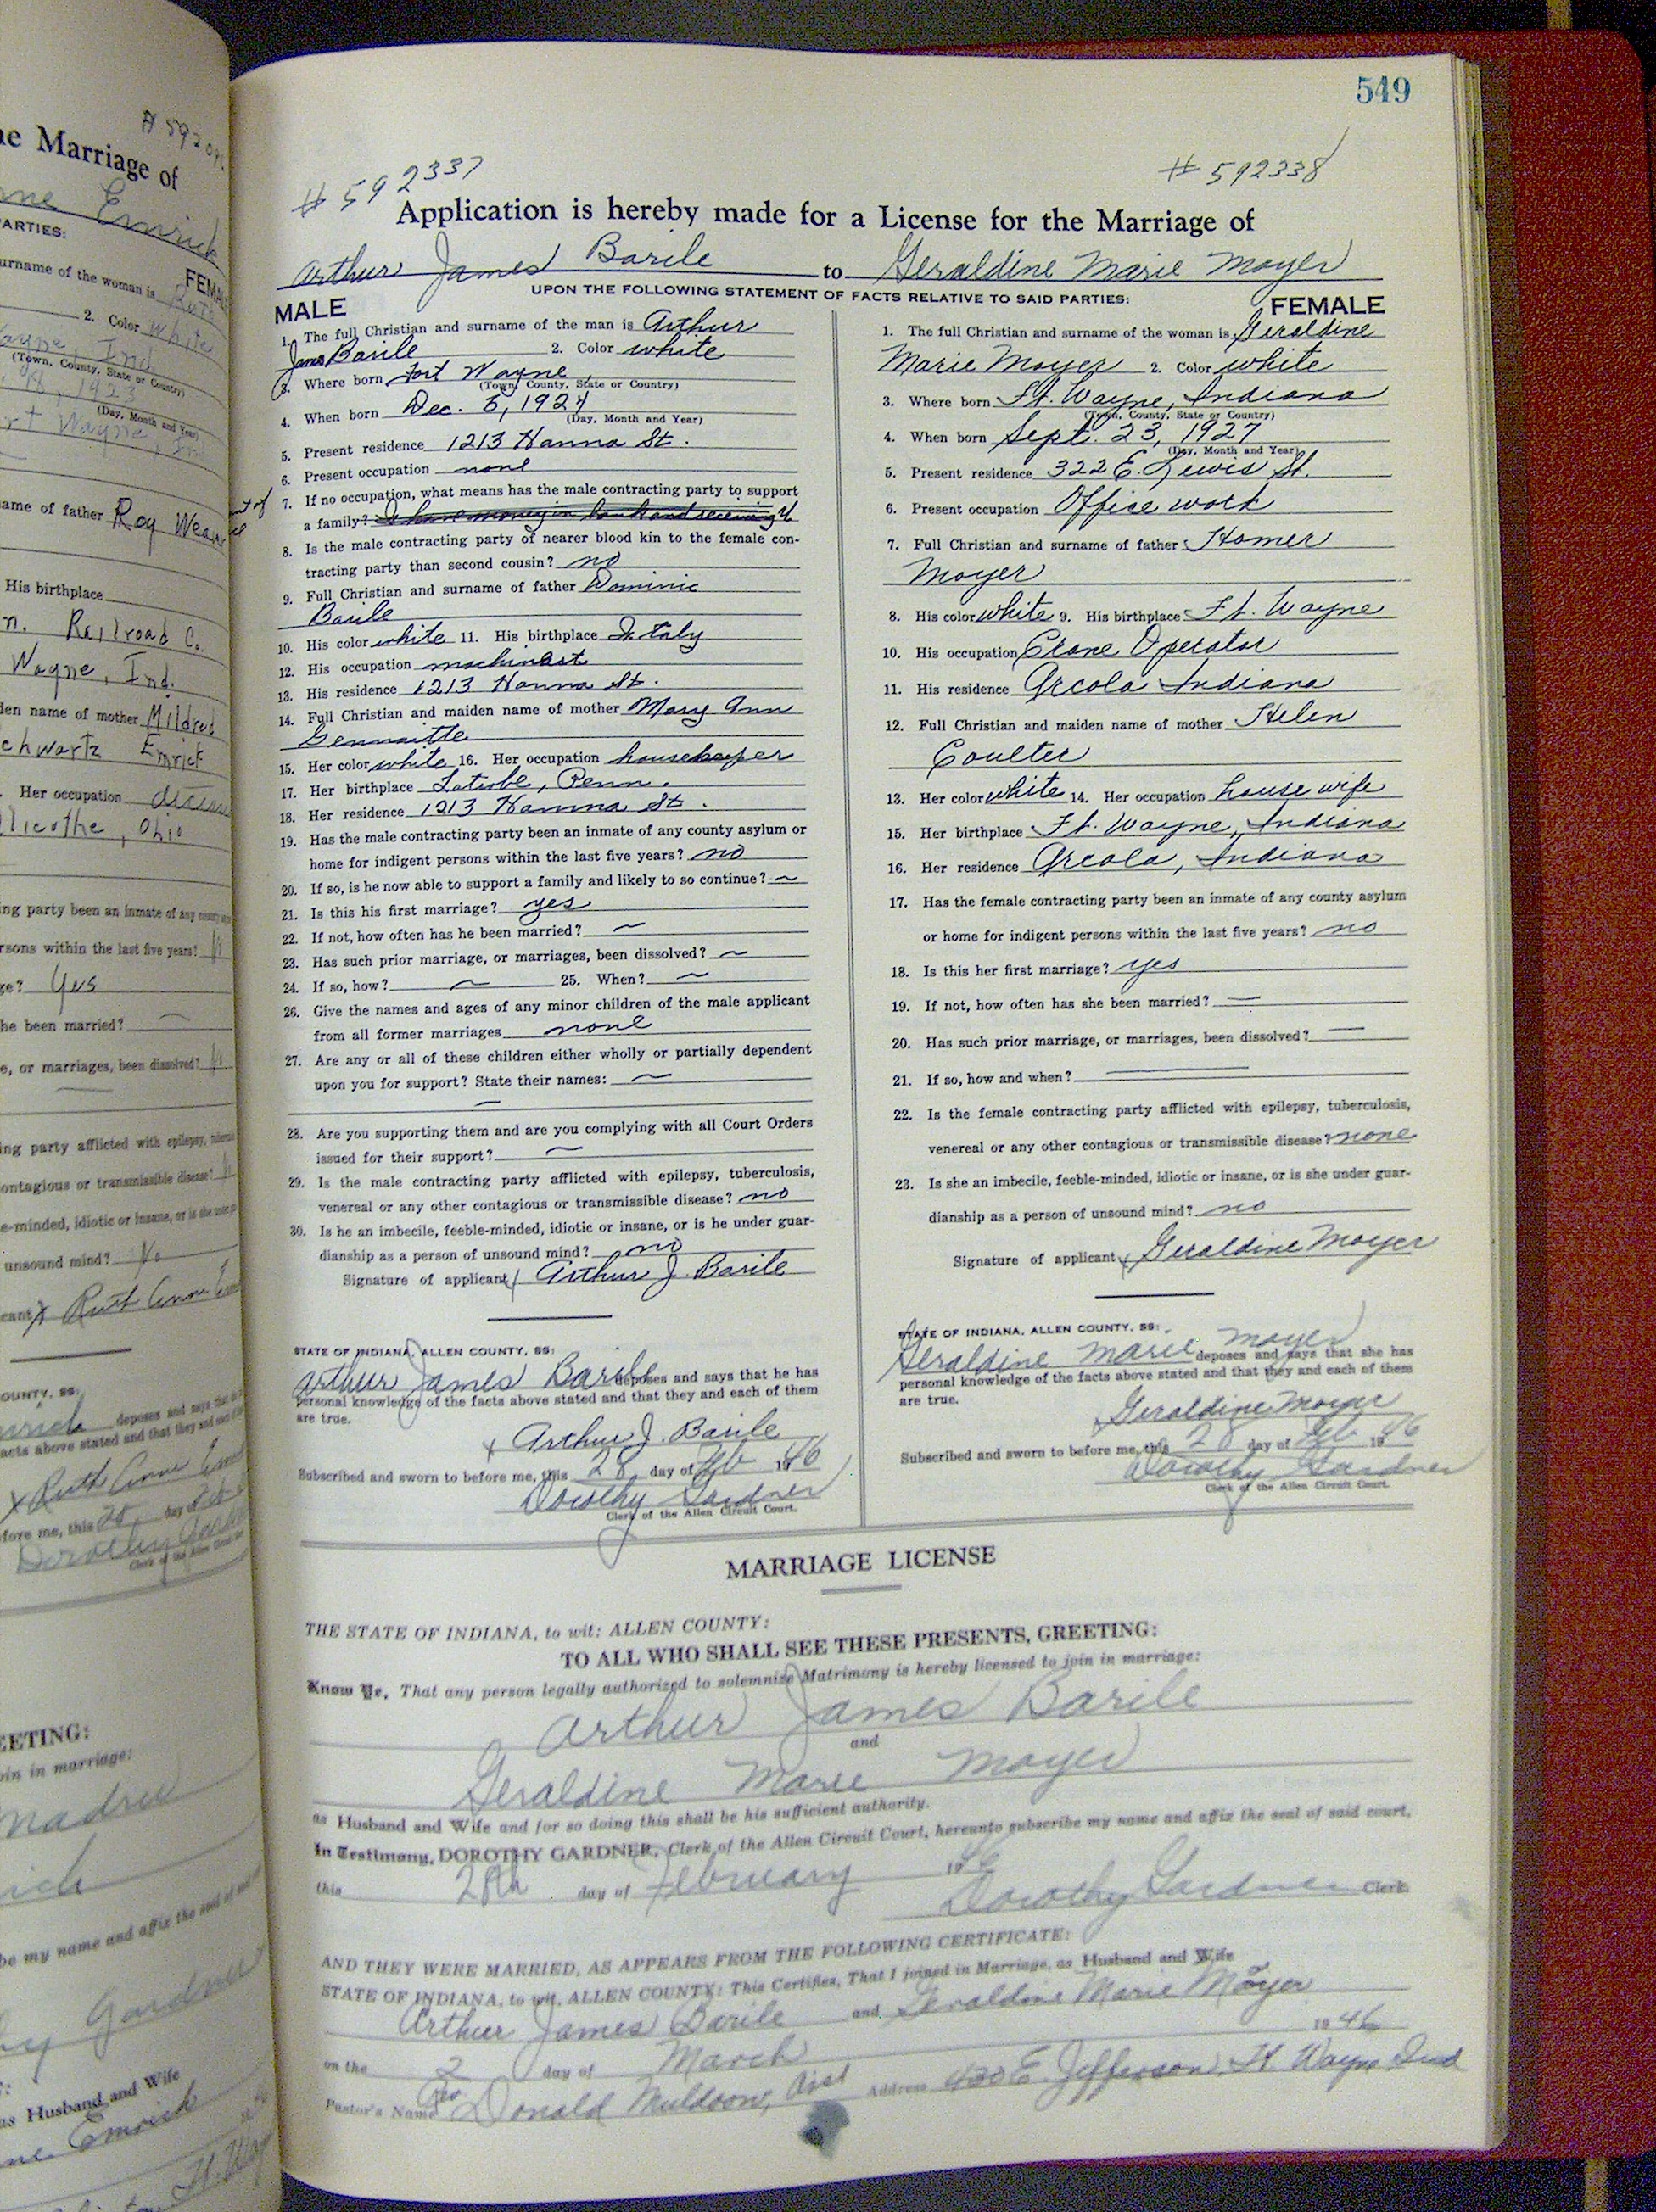 549
# 592337
# 592338
Application is hereby made for a License for the Marriage of
Arthur James Barile to Geraldine Marie Moyer
UPON THE FOLLOWING STATEMENT OF FACTS RELATIVE TO SAID PARTIES:
MALE
1. The full Christian and surname of the man is Arthur
James Barile 2. Color white
3. Where born Fort Wayne
(Town, County, State or Country)
4. When born Dec. 5, 1924
(Day, Month and Year)
5. Present residence 1213 Hanna St.
6. Present occupation none
7. If no occupation, what means has the male contracting party to support
a family? I have money in bank and receiving
8. Is the male contracting party of nearer blood kin to the female con-
tracting party than second cousin? no
9. Full Christian and surname of father Dominic
Barile
10. His color white 11. His birthplace Italy
12. His occupation machinast
13. His residence 1213 Hanna St.
14. Full Christian and maiden name of mother Mary Ann
Gennaitte
15. Her color white 16. Her occupation housekeeper
17. Her birthplace Latrobe, Penn.
18. Her residence 1213 Hanna St.
19. Has the male contracting party been an inmate of any county asylum or
home for indigent persons within the last five years? no
20. If so, is he now able to support a family and likely to so continue? ~
21. Is this his first marriage? yes
22. If not, how often has he been married? ~
23. Has such prior marriage, or marriages, been dissolved? ~
24. If so, how? ~ 25. When? ~
26. Give the names and ages of any minor children of the male applicant
from all former marriages none
27. Are any or all of these children either wholly or partially dependent
upon you for support? State their names: ~
28. Are you supporting them and are you complying with all Court Orders
issued for their support? ~
29. Is the male contracting party afflicted with epilepsy, tuberculosis,
venereal or any other contagious or transmissible disease? no
30. Is he an imbecile, feeble-minded, idiotic or insane, or is he under guar-
dianship as a person of unsound mind? no
Signature of applicant x Arthur J. Barile
STATE OF INDIANA, ALLEN COUNTY, SS:
Arthur James Barile deposes and says that he has
personal knowledge of the facts above stated and that they and each of them
are true.
x Arthur J. Barile
Subscribed and sworn to before me, this 28 day of Feb 1946
Dorothy Gardner
Clerk of the Allen Circuit Court.
FEMALE
1. The full Christian and surname of the woman is Geraldine
Marie Moyer 2. Color white
3. Where born Ft. Wayne, Indiana
(Town, County, State or Country)
4. When born Sept. 23, 1927
(Day, Month and Year)
5. Present residence 322 E. Lewis St.
6. Present occupation Office work
7. Full Christian and surname of father Homer
Moyer
8. His color white 9. His birthplace Ft. Wayne
10. His occupation Crane Operator
11. His residence Arcola Indiana
12. Full Christian and maiden name of mother Helen
Coulter
13. Her color white 14. Her occupation house wife
15. Her birthplace Ft. Wayne, Indiana
16. Her residence Arcola, Indiana
17. Has the female contracting party been an inmate of any county asylum
or home for indigent persons within the last five years? no
18. Is this her first marriage? yes
19. If not, how often has she been married? —
20. Has such prior marriage, or marriages, been dissolved? —
21. If so, how and when? —
22. Is the female contracting party afflicted with epilepsy, tuberculosis,
venereal or any other contagious or transmissible disease? none
23. Is she an imbecile, feeble-minded, idiotic or insane, or is she under guar-
dianship as a person of unsound mind? no
Signature of applicant x Geraldine Moyer
STATE OF INDIANA, ALLEN COUNTY, SS:
Geraldine Marie Moyer deposes and says that she has
personal knowledge of the facts above stated and that they and each of them
are true.
x Geraldine Moyer
Subscribed and sworn to before me, this 28 day of Feb 1946
Dorothy Gardner
Clerk of the Allen Circuit Court.
MARRIAGE LICENSE
THE STATE OF INDIANA, to wit: ALLEN COUNTY:
TO ALL WHO SHALL SEE THESE PRESENTS, GREETING:
Know Ye, That any person legally authorized to solemnize Matrimony is hereby licensed to join in marriage:
Arthur James Barile
and
Geraldine Marie Moyer
as Husband and Wife and for so doing this shall be his sufficient authority.
In Testimony, DOROTHY GARDNER, Clerk of the Allen Circuit Court, hereunto subscribe my name and affix the seal of said court,
this 28th day of February 1946
Dorothy Gardner Clerk.
AND THEY WERE MARRIED, AS APPEARS FROM THE FOLLOWING CERTIFICATE:
STATE OF INDIANA, to wit, ALLEN COUNTY: This Certifies, That I joined in Marriage, as Husband and Wife
Arthur James Barile and Geraldine Marie Moyer
on the 2 day of March 1946
Pastor's Name Rev Donald Muldoon, Asst Address 430 E. Jefferson, Ft Wayne Ind